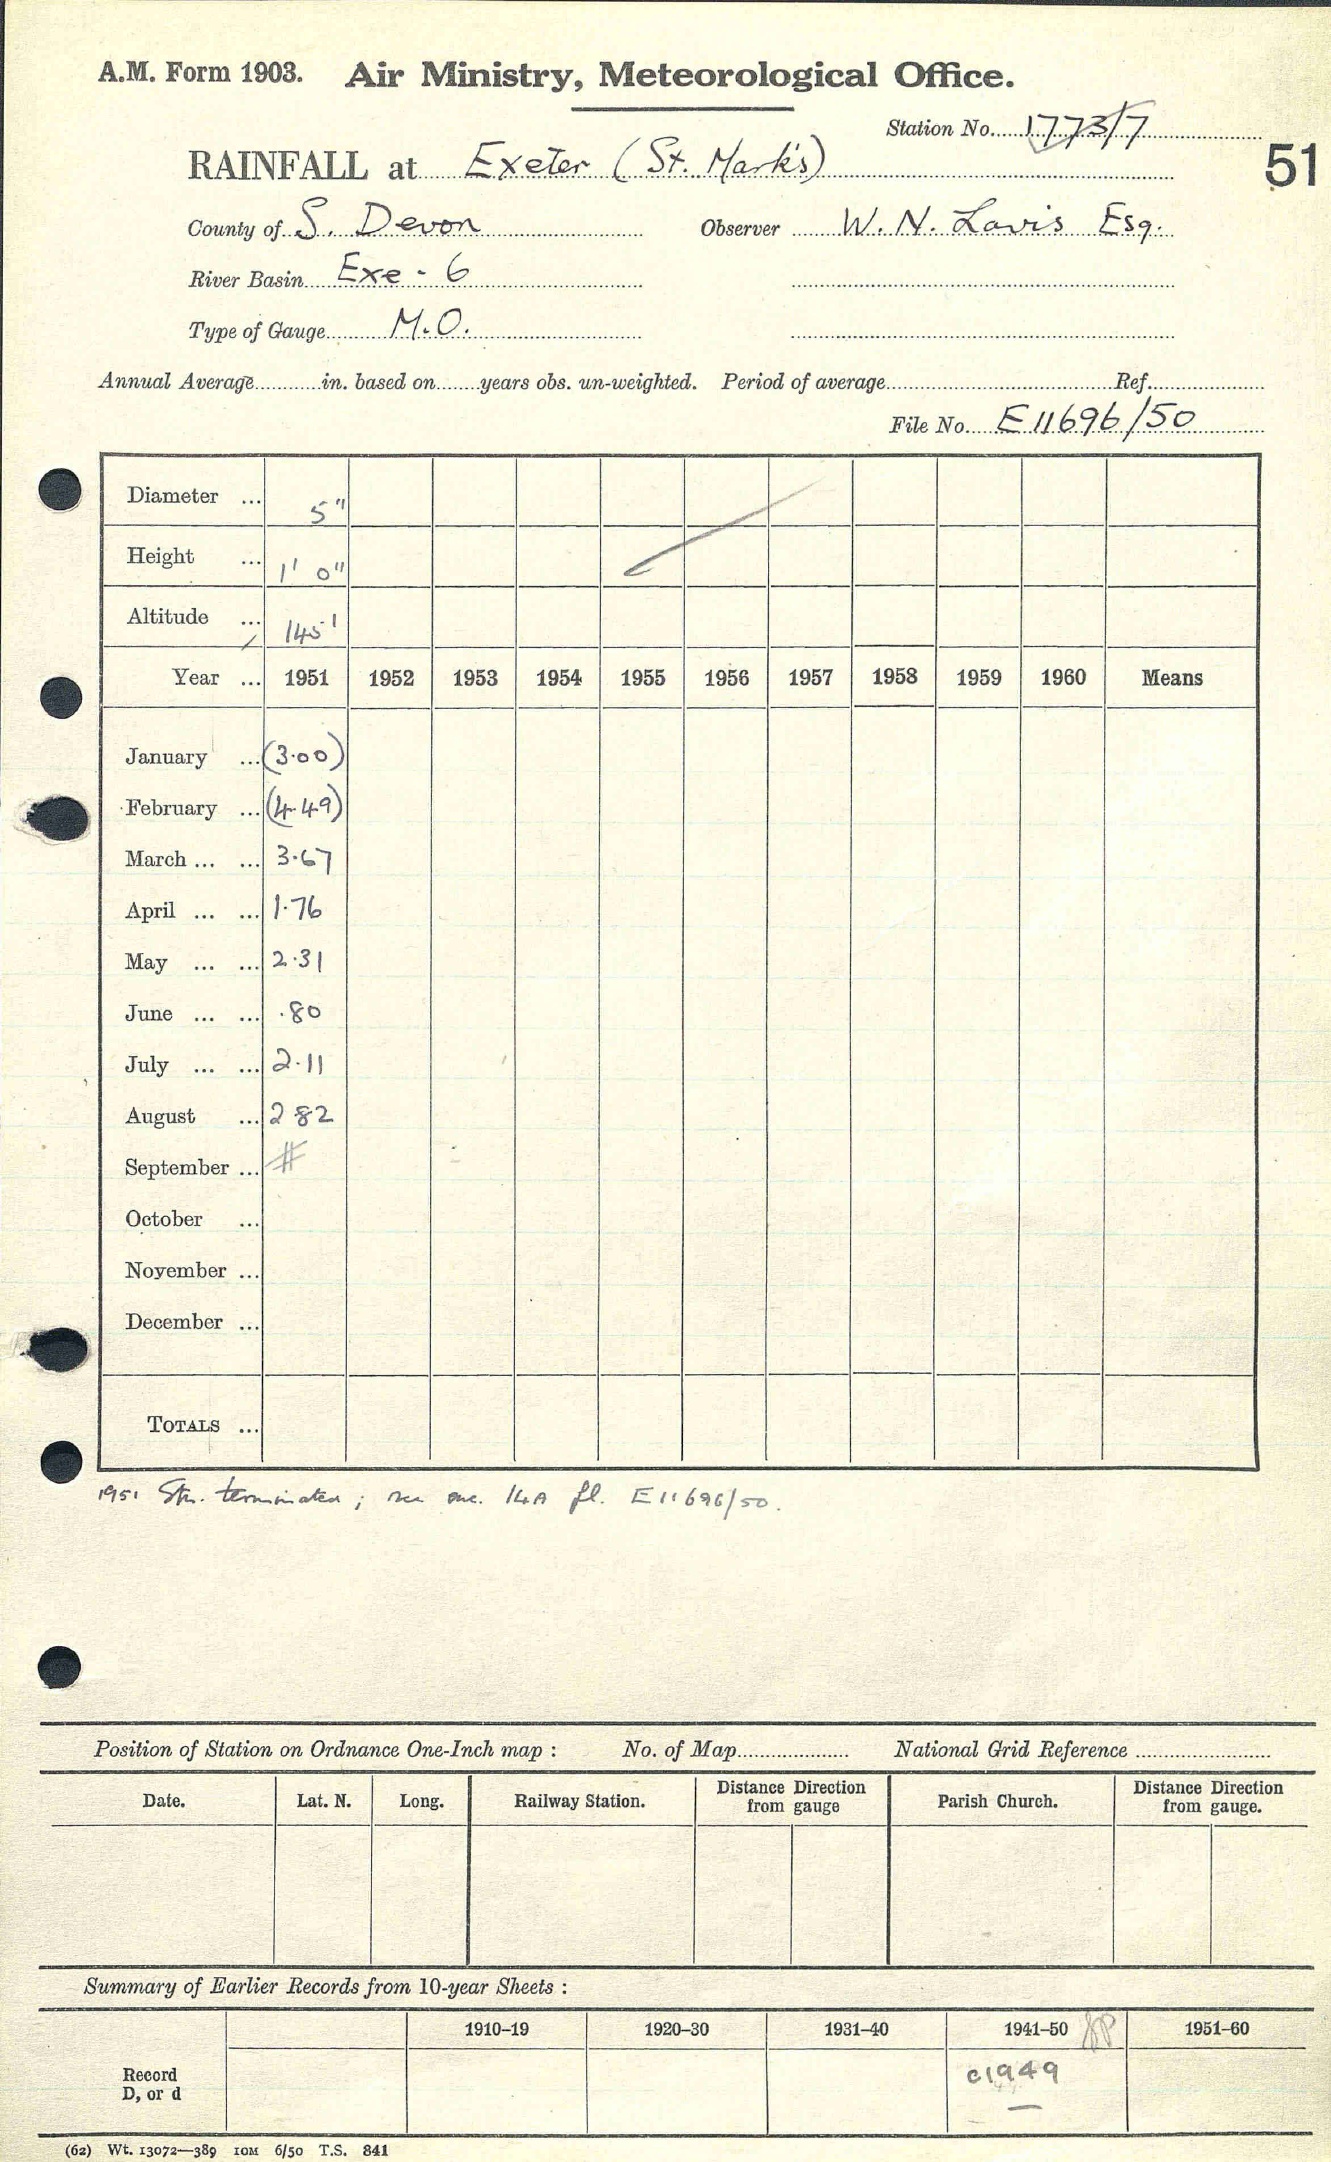 A.M. Form 1903. Air Ministry, Meteorological Office.
Station No. 1773/7
51
RAINFALL at Exeter (St. Mark's)
County of S. Devon Observer W. N. Lavis Esq.
River Basin Exe - 6
Type of Gauge M.O.
Annual Average in. based on years obs. un-weighted. Period of average Ref.
File No. E 11696/50
Diameter ... 5"
Height ... 1' 0"
Altitude ... 145'
Year ... 1951 1952 1953 1954 1955 1956 1957 1958 1959 1960 Means
January ... (3.00)
February ... (4.49)
March ... ... 3.67
April ... ... 1.76
May ... ... 2.31
June ... ... .80
July ... ... 2.11
August ... 2 82
September ... #
October ...
November ...
December ...
TOTALS ...
1951 Stn. terminated; see enc. 14A fl. E11696/50.
Position of Station on Ordnance One-Inch map : No. of Map National Grid Reference
Date. Lat. N. Long. Railway Station. Distance Direction from gauge Parish Church. Distance Direction from gauge.
Summary of Earlier Records from 10-year Sheets :
1910–19 1920–30 1931–40 1941–50 1951–60
Record D, or d c1949
(62) Wt. 13072—389 10M 6/50 T.S. 841